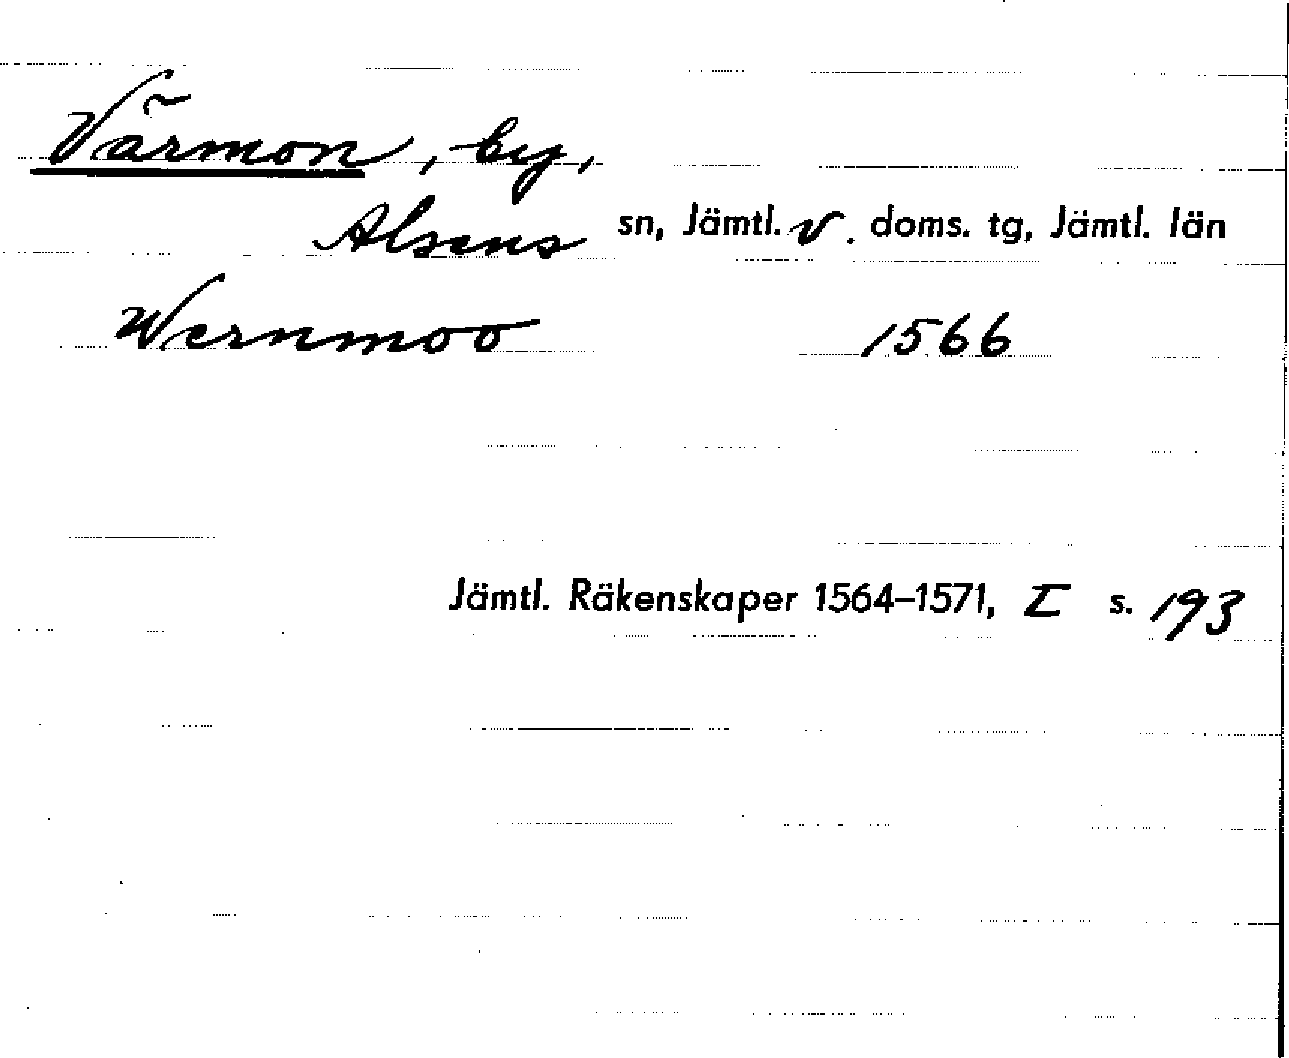 Värmon, by,
Alsens sn, Jämtl. v. doms. tg, Jämtl. län
Wernmoo 1566
Jämtl. Räkenskaper 1564–1571, I s. 193